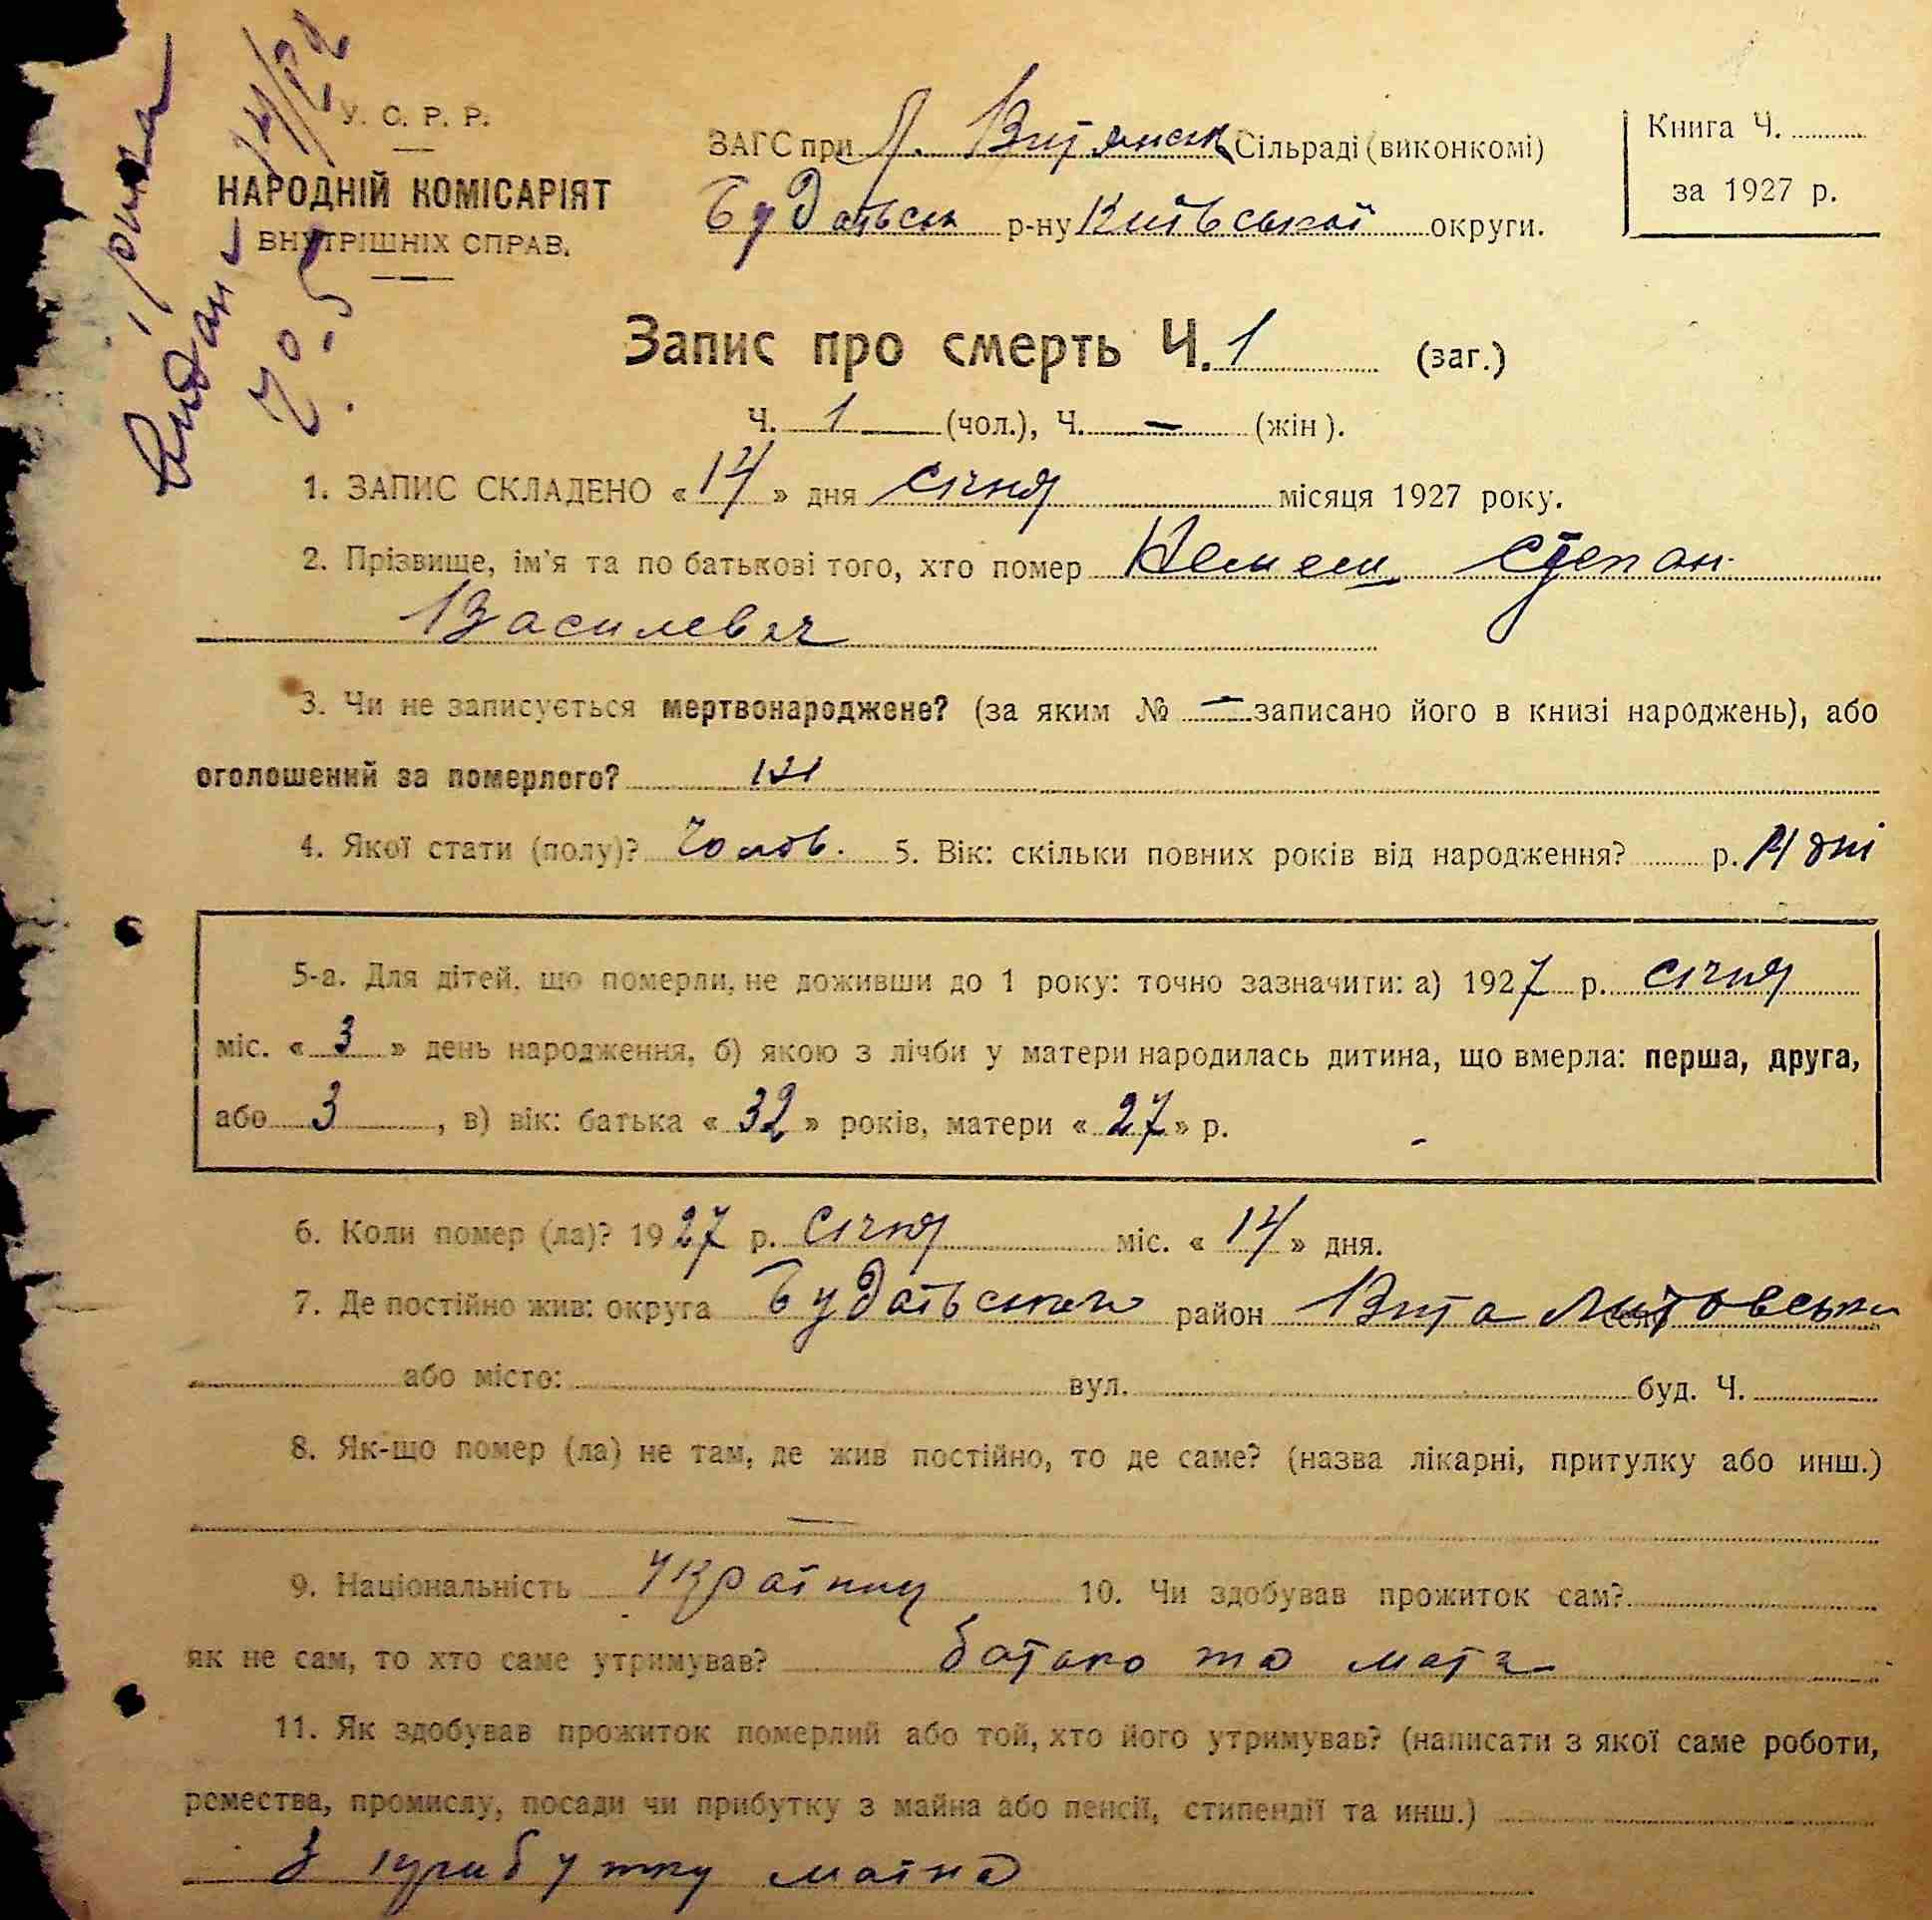 У. С. Р. Р.
НАРОДНІЙ КОМІСАРІЯТ
ВНУТРІШНІХ СПРАВ.
ЗАГС при Л. Витянськ Сільраді (виконкомі)
Будаївськ р-ну Київської округи.
Книга Ч.
за 1927 р.
Запис про смерть Ч. 1 (заг.)
Ч. 1 (чол.), Ч. — (жін).
1. ЗАПИС СКЛАДЕНО « 14 » дня січня місяця 1927 року.
2. Прізвище, ім'я та по батькові того, хто помер Немеш Степан
Василевич
3. Чи не записується мертвонароджене? (за яким № — записано його в книзі народжень), або
оголошений за померлого? ні
4. Якої стати (полу)? Чолов. 5. Вік: скільки повних років від народження? р. дні
5-а. Для дітей, що померли, не доживши до 1 року: точно зазначити: а) 1927 р. січня
міс. « 3 » день народження, б) якою з лічби у матери народилась дитина, що вмерла: перша, друга,
або 3, в) вік: батька « 32 » років, матери « 27 » р.
6. Коли помер (ла)? 1927 р. січня міс. « 14 » дня.
7. Де постійно жив: округа Будаївського район Вита Литовська село
або місто: вул. буд. Ч.
8. Як-що помер (ла) не там, де жив постійно, то де саме? (назва лікарні, притулку або инш.)
—
9. Національність Українц 10. Чи здобував прожиток сам?
як не сам, то хто саме утримував? батько та мати
11. Як здобував прожиток померлий або той, хто його утримував? (написати з якої саме роботи,
ремества, промислу, посади чи прибутку з майна або пенсії, стипендії та инш.)
З прибутку маіна